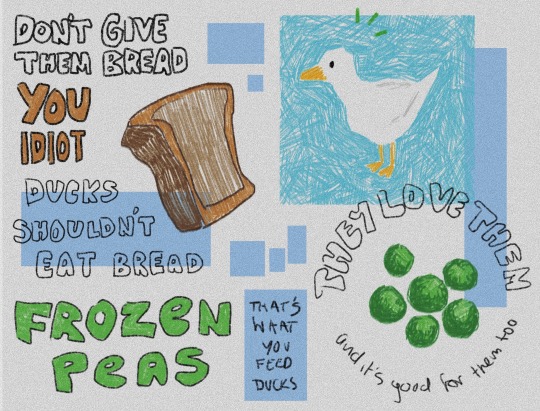 DON'T GIVE
THEM BREAD
YOU
IDIOT
DUCKS
SHOULDN'T
EAT BREAD
FROZEN
PEAS
THAT'S
WHAT
YOU
FEED
DUCKS
THEY LOVE THEM
and it's good for them too